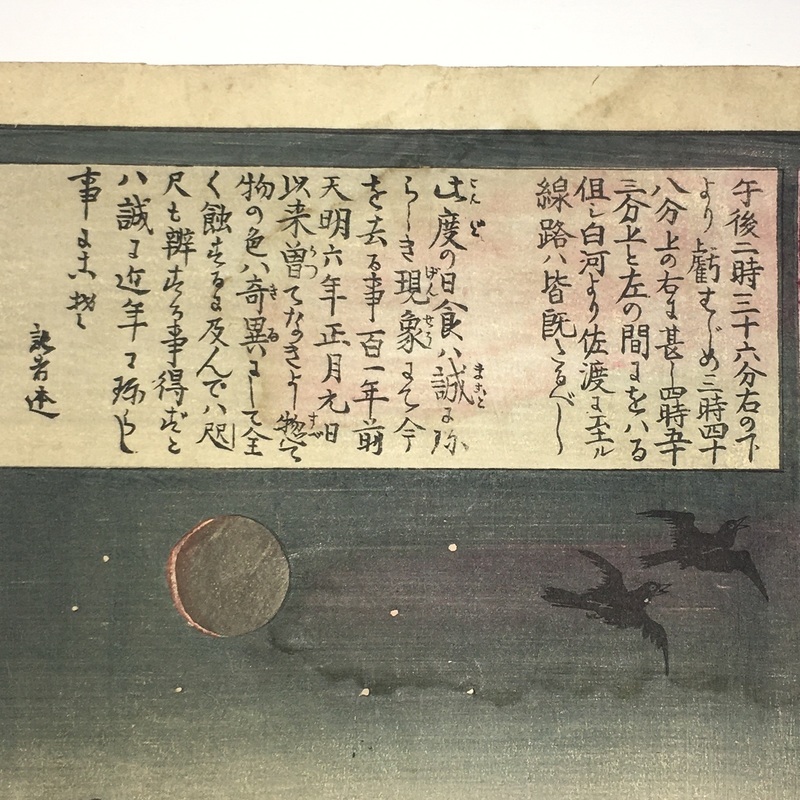 午後二時三十六分右の下
より虧はじめ三時四十
八分上の右に甚し四時五十
三分上と左の間にをハる
但シ白河より佐渡に至ル
線路ハ皆既たるべし
此度の日食ハ誠に珎
らしき現象にて今
を去る事百一年前
天明六年正月元日
以来曽てなきよし惣て
物の色ハ奇異にして全
く蝕するに及んでハ咫
尺も辨ずる事得ずと
ハ誠に近年の珎らし
事に
記者述